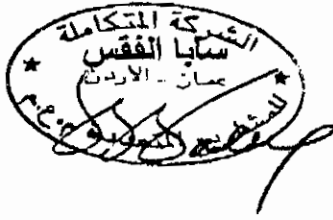 الشركة المتكاملة
سابا الفقس
عمان - الأردن
للمشاريع المتعددة ذ.م.م